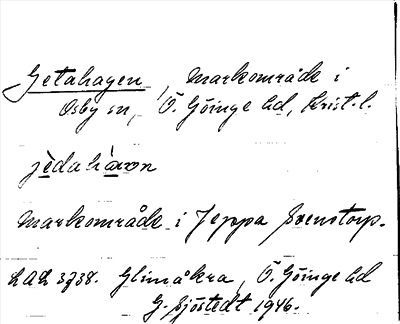 Getahagen, Markområde i
Osby sn, Ö. Göinge hd, Krist. l.
jèdahàgan
Markområde i Jeppa Svenstorp.
LAL 3738. Glimåkra, Ö. Göinge hd
G. Sjöstedt 1946.